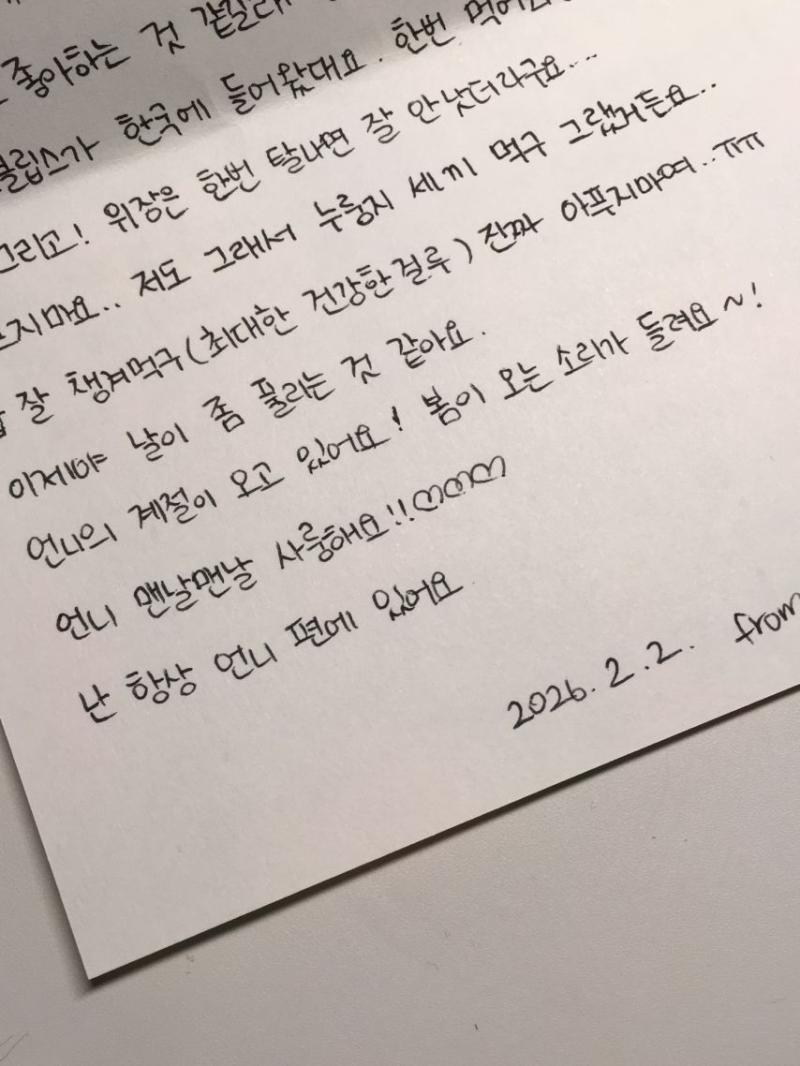 좋아하는 것 같길래
클립스가 한국에 들어왔대요. 한번
그리고! 위장은 한번 탈나면 잘 안낫더라구요...
저도 그래서 누룽지 세끼 먹구 그랬거든요..
잘 챙겨먹구(최대한 건강한걸루) 진짜 아푸지마여..ㅠㅠ
이제야 날이 좀 풀리는 것 같아요.
언니의 계절이 오고 있어요! 봄이 오는 소리가 들려요~!
언니 맨날맨날 사룽해요!!♡♡♡
난 항상 언니 편에 있어요
2026.2.2. from